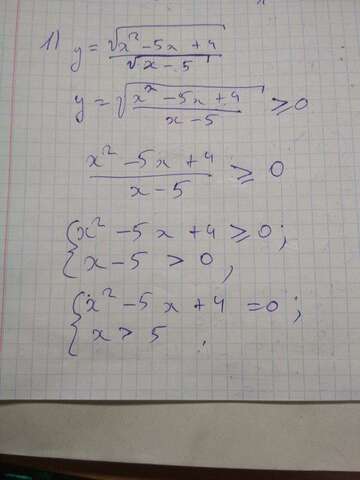 1) y = √(x² - 5x + 4) / √(x - 5)
y = √((x² - 5x + 4) / (x - 5)) ≥ 0
(x² - 5x + 4) / (x - 5) ≥ 0
{ x² - 5x + 4 ≥ 0;
{ x - 5 > 0,
{ x² - 5x + 4 = 0;
{ x > 5.